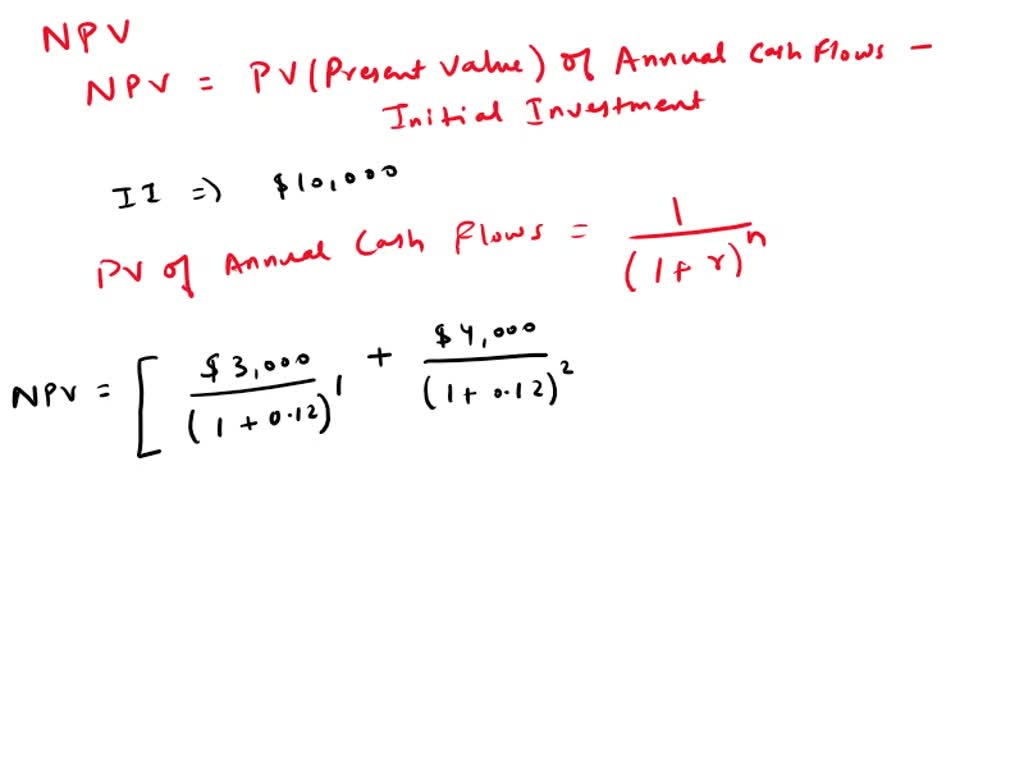 NPV
NPV = PV (Present Value) of Annual Cash Flows -
Initial Investment
II => $10,000
PV of Annual Cash Flows = 1 / (1 + r)^n
NPV = [ $3,000 / (1 + 0.12)^1 + $4,000 / (1 + 0.12)^2